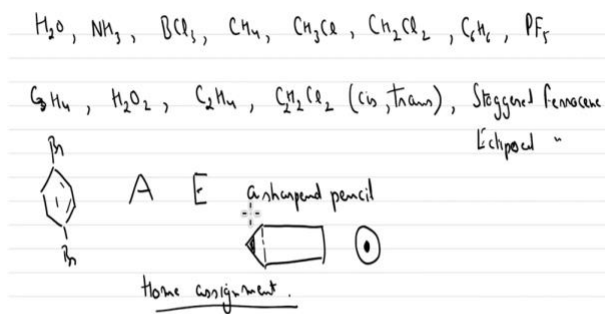 H₂O, NH₃, BCl₃, CH₄, CH₃Cl, CH₂Cl₂, C₆H₆, PF₅
C₃H₄, H₂O₂, C₂H₄, C₂H₂Cl₂ (cis, trans), Staggered Ferrocene
Eclipsed "
Br
A E a sharpend pencil
Br
Home assignment.